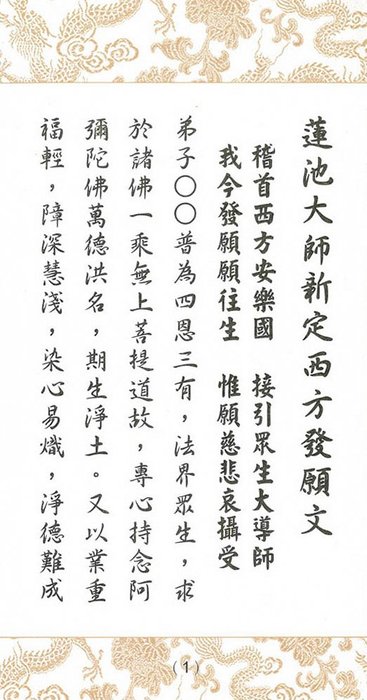 蓮池大師新定西方發願文
稽首西方安樂國　接引眾生大導師
我今發願願往生　惟願慈悲哀攝受
弟子○○普為四恩三有，法界眾生，求
於諸佛一乘無上菩提道故，專心持念阿
彌陀佛萬德洪名，期生淨土。又以業重
福輕，障深慧淺，染心易熾，淨德難成
(1)